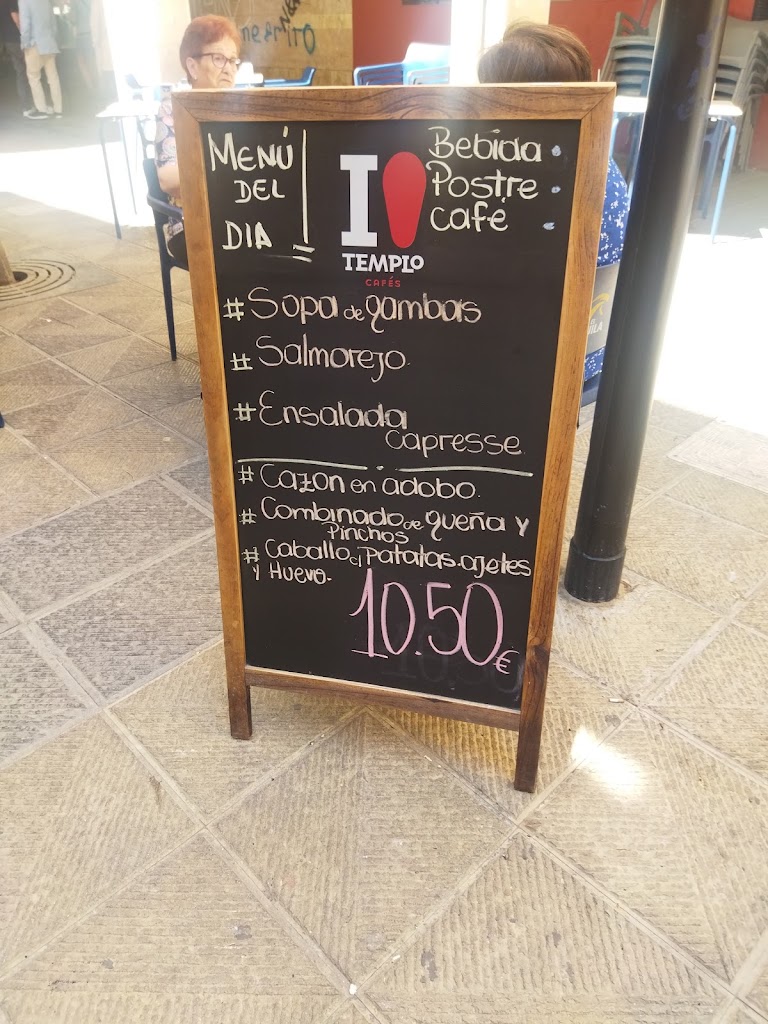 MENÚ
DEL
DIA
Bebida
Postre
café
I
TEMPLO
CAFÉS
# Sopa de gambas
# Salmorejo.
# Ensalada
capresse
# Cazon en adobo.
# Combinado de queña y
Pinchos
# Caballo c/ patatas.ajetes
y Huevo.
10.50€